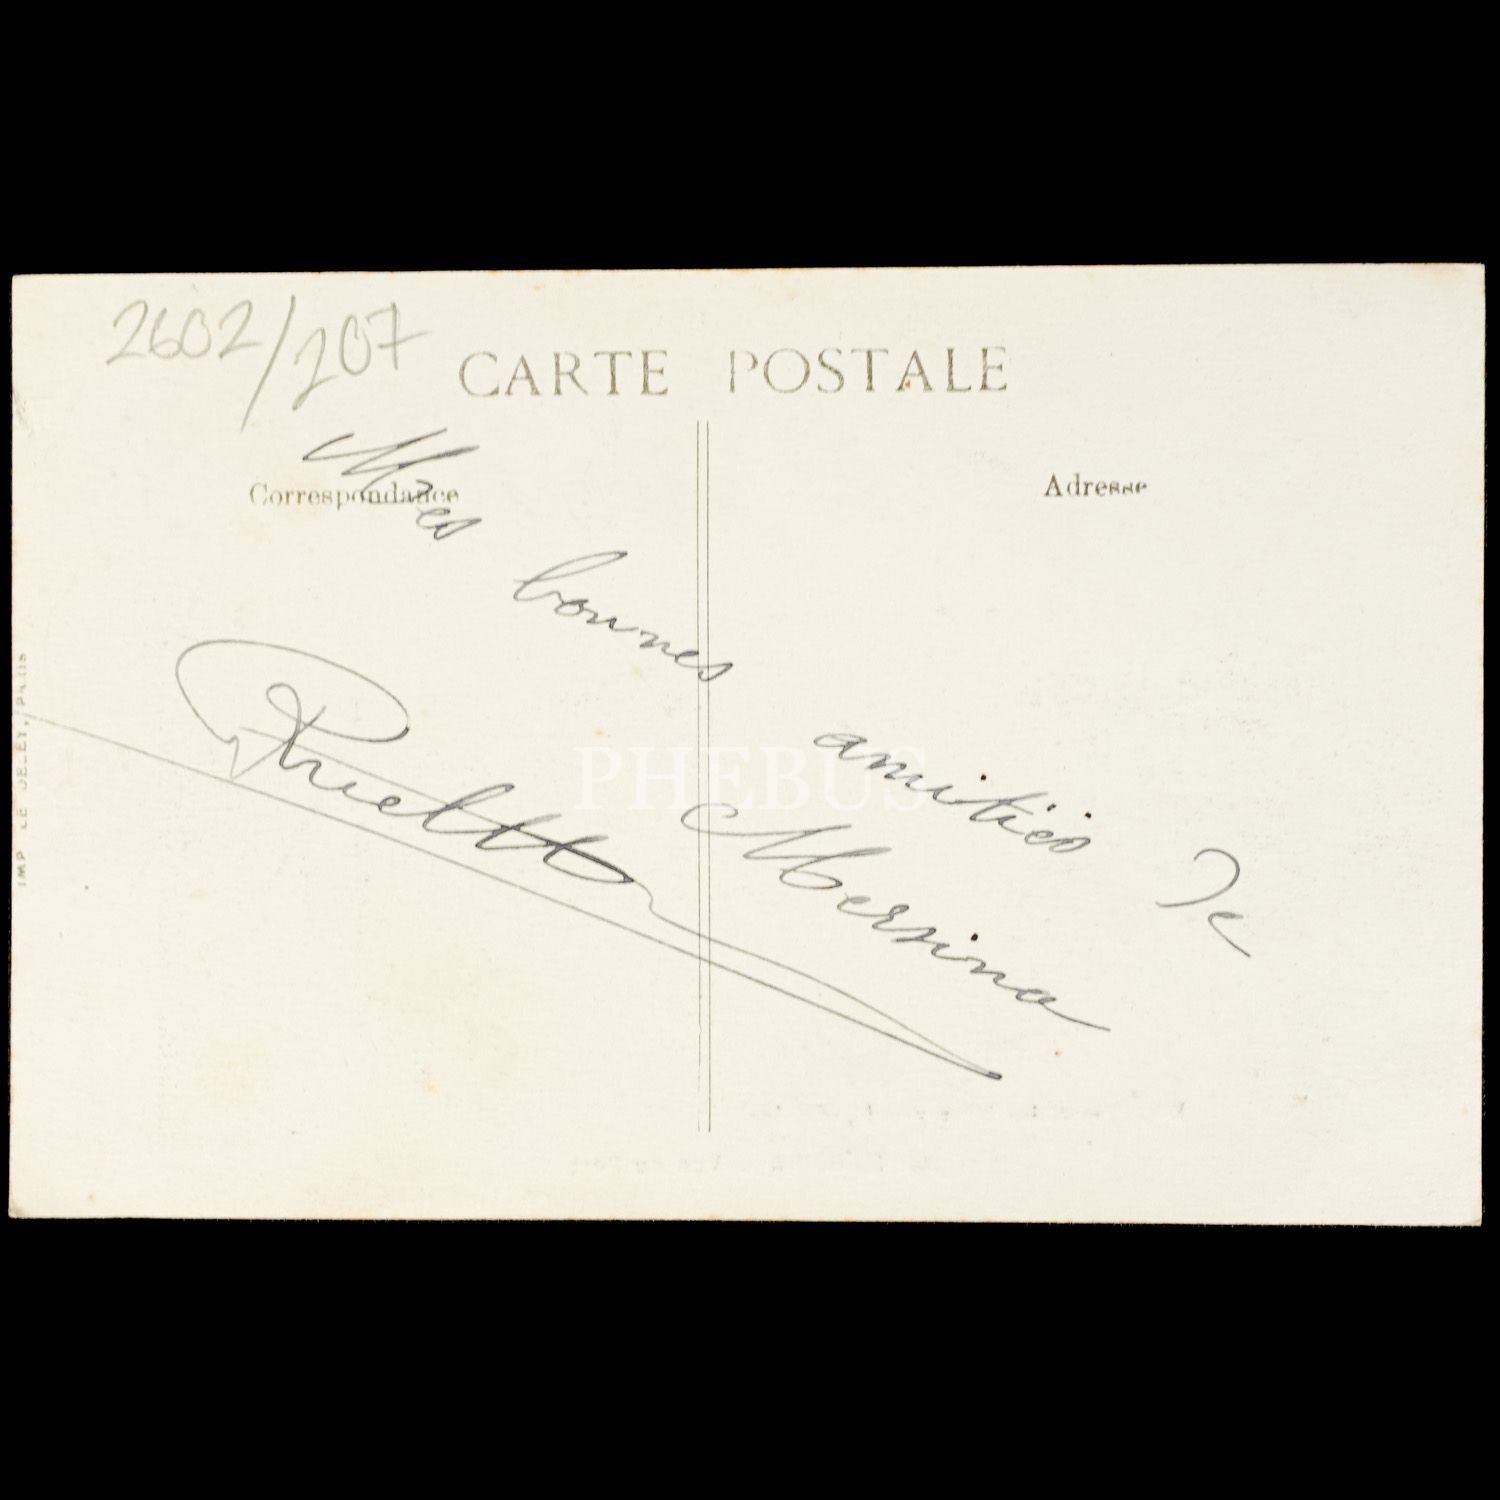 2602/207
CARTE POSTALE
Correspondance
Adresse
Mes bonnes amitiés de
Mersina
PHEBUS
IMP LE DELEY, PARIS